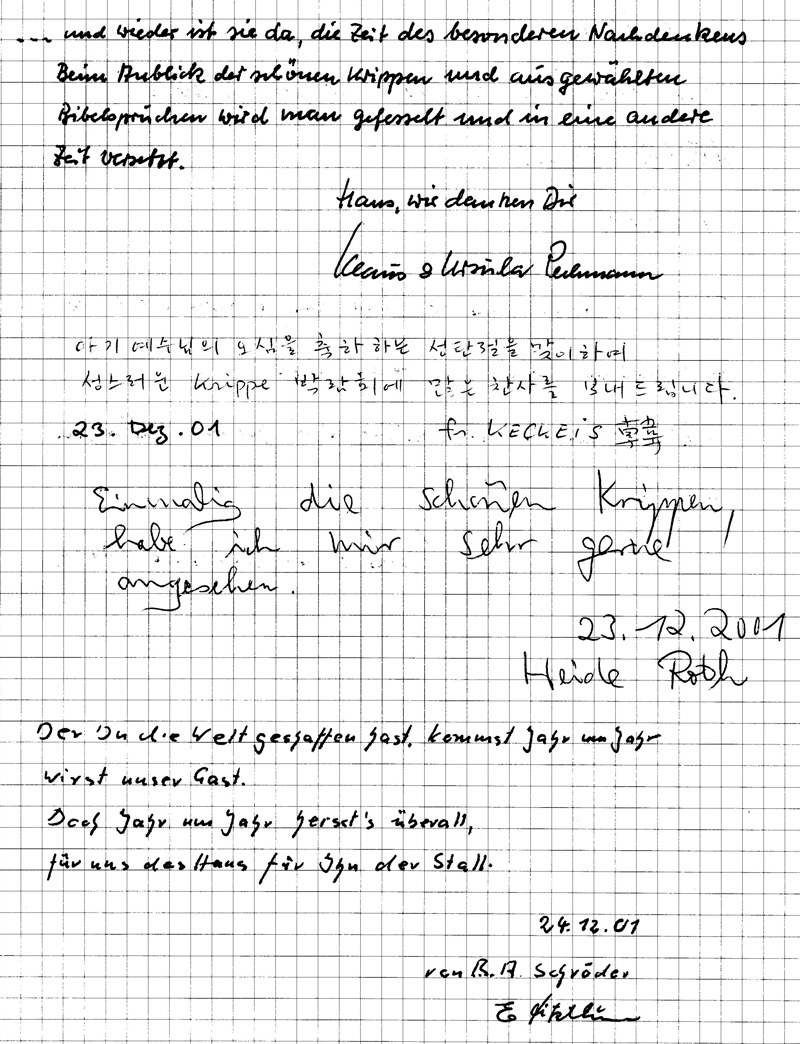 ... und wieder ist sie da, die Zeit des besonderen Nachdenkens
Beim Anblick der schönen Krippen und ausgewählten
Bibelsprüchen wird man gefesselt und in eine andere
Zeit versetzt.
Hans, wir danken Dir
Klaus & Ursula Pechmann
아기 예수님의 오심을 축하하는 성탄절을 맞이하여
성스러운 Krippe 박람회에 많은 찬사를 보내드립니다.
23. Dez. 01
fr. KECKEIS
Einmalig die schönen Krippen,
habe ich mir sehr gerne
angesehen.
23.12.2001
Heide Roth
Der Du die Welt geschaffen hast, kommst Jahr um Jahr
wirst unser Gast.
Doch Jahr um Jahr herscht's überall,
für uns das Haus für Ihn der Stall.
24.12.01
von R. A. Schröder
E